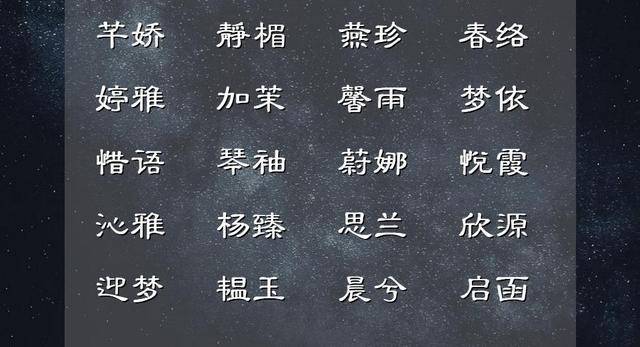 芊娇 靜楣 燕珍 春络
婷雅 加茉 馨雨 梦依
惜语 琴袖 蔚娜 悦霞
沁雅 杨臻 思兰 欣源
迎梦 韫玉 晨兮 启函